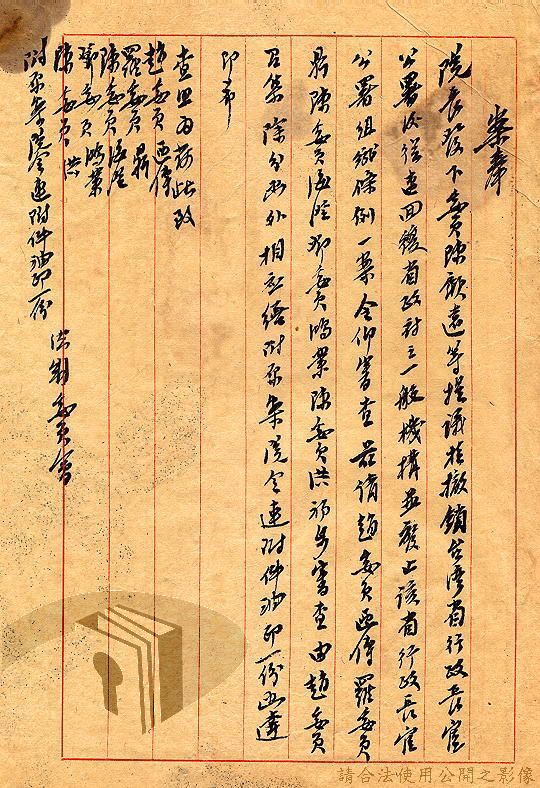 案奉
院長發下委員陳顧遠等提議於撤銷台灣省行政長官
公署後從速回復省政府之一般機構並廢止該省行政長官
公署組織條例一案令仰審查茲請趙委員 羅委員
鼎陳委員海澄鄧委員鴻業陳委員洪初步審查由趙委員
召集除分函外相應繕附原案院令連附件油印一份函達
即希
查照為荷此致
趙委員
羅委員鼎
陳委員海澄
鄧委員鴻業
陳委員洪
附原案院令連附件油印一份
法制委員會
請合法使用公開之影像